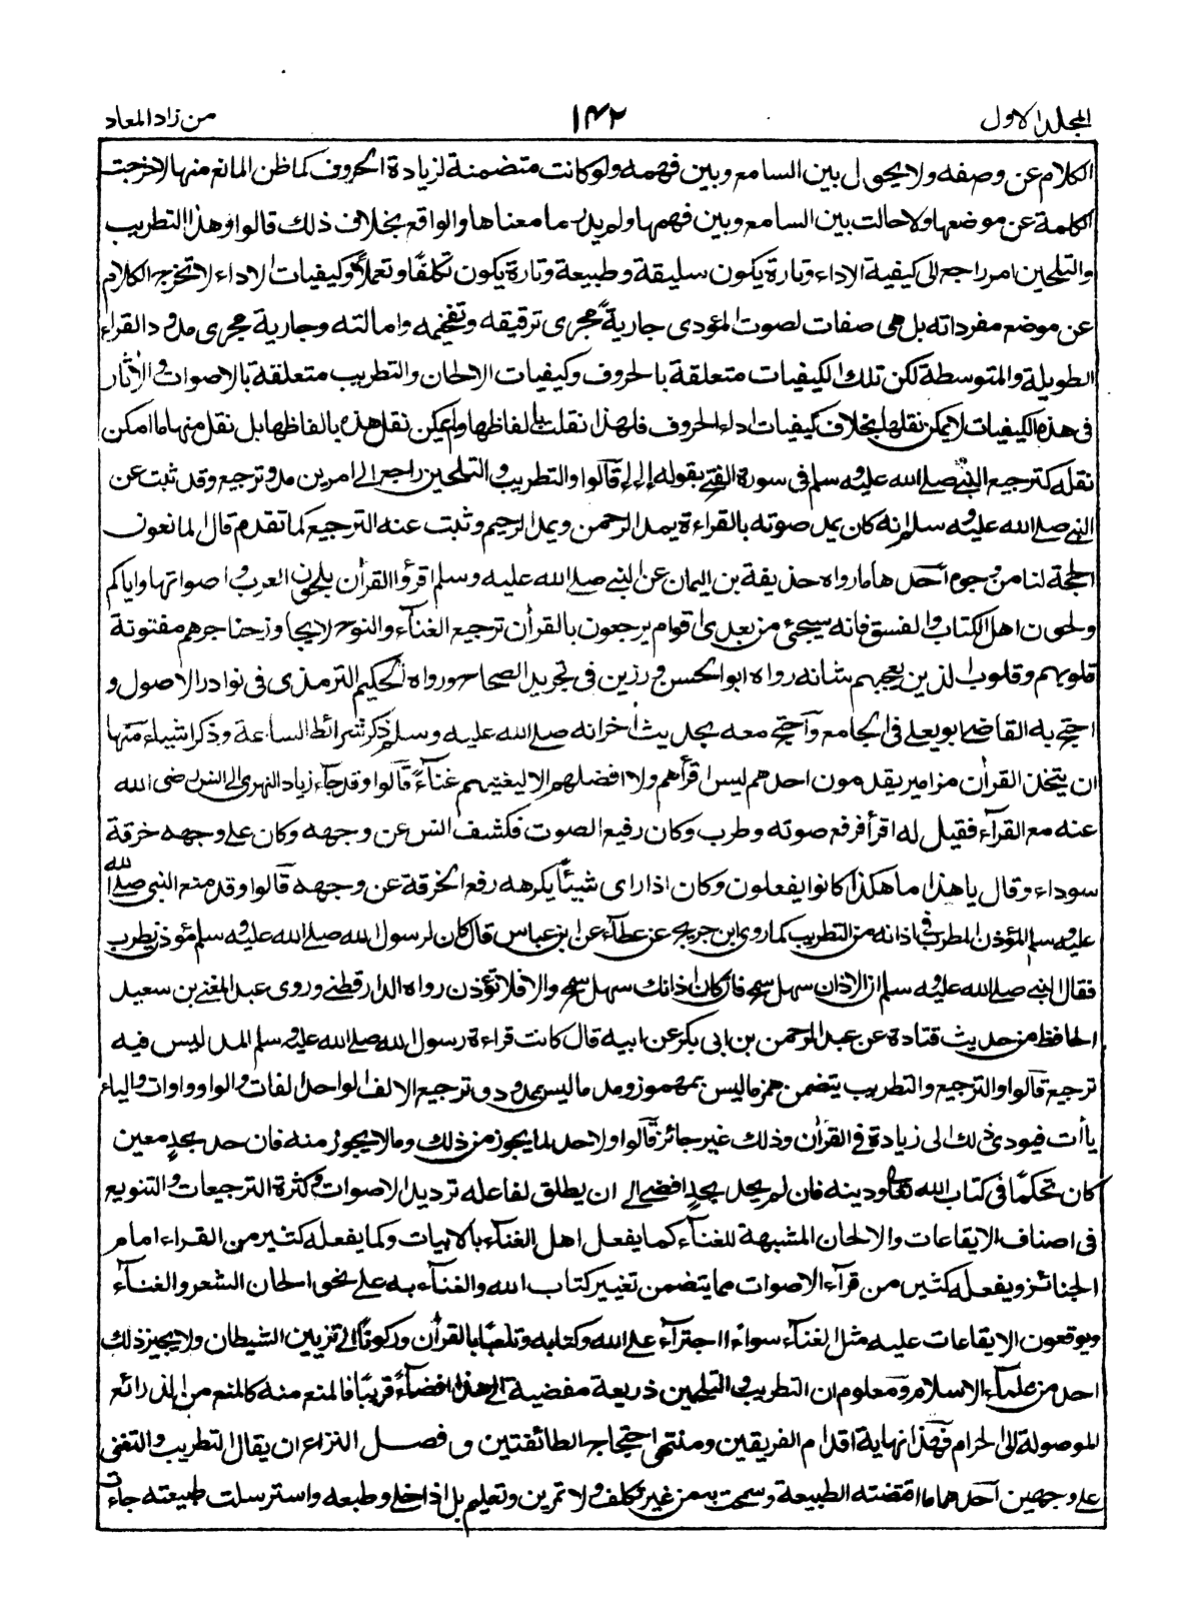 المجلد الاول
۱۴۲
من زاد المعاد
الكلام عن وصفه ولا يحول بين السامع وبين فهمه ولو كانت متضمنة لزيادة الحروف كما ظن المانع منها لاخرجت
الكلمة عن موضعها ولاحالت بين السامع وبين فهمها ولم يدر ما معناها والواقع بخلاف ذلك قالوا وهذا التطريب
والتلحين امر راجع الى كيفية الاداء وتارة يكون سليقة وطبيعة وتارة يكون تكلفًا وتعملًا وكيفيات الاداء لا تخرج الكلام
عن موضع مفرداته بل هى صفات لصوت المؤدى جارية مجرى ترقيقه وتفخيمه وامالته وجارية مجرى مدود القراء
الطويلة والمتوسطة لكن تلك الكيفيات متعلقة بالحروف وكيفيات الالحان والتطريب متعلقة بالاصوات والآثار
فى هذه الكيفيات لا يمكن نقلها بخلاف كيفيات اداء الحروف فلهذا نقلت تلك بالفاظها ولم يمكن نقل هذه بالفاظها بل نقل منها ما امكن
نقله كترجيع النبى صلى الله عليه وسلم فى سورة الفتح بقوله إ إ إ قالوا والتطريب والتلحين راجع الى امرين مد وترجيع وقد ثبت عن
النبى صلى الله عليه وسلم انه كان يمد صوته بالقراءة يمد الرحمن ويمد الرحيم وثبت عنه الترجيع كما تقدم قال المانعون
الحجة لنا من وجوه أحدها ما رواه حذيفة بن اليمان عن النبى صلى الله عليه وسلم اقرؤا القرأن بلحون العرب واصواتها واياكم
ولحون اهل الكتاب والفسق فانه سيجئ من بعدى اقوام يرجعون بالقرأن ترجيع الغنآء والنوح لا يجاوز حناجرهم مفتونة
قلوبهم وقلوب الذين يعجبهم شانه رواه ابو الحسن رزين فى تجريد الصحاح ورواه الحكيم الترمذى فى نوادر الاصول و
احتج به القاضى ابو يعلى فى الجامع وآحتج معه بحديث أخر انه صلى الله عليه وسلم ذكر شرائط الساعة وذكر اشياء منها
ان يتخذ القرأن مزامير يقدمون احدهم ليس اقرأهم ولا افضلهم الا ليغنيهم غنآءً قالوا وقد جآء زياد النهرى الى انس رضى الله
عنه مع القرآء فقيل له اقرأ فرفع صوته وطرب وكان رفيع الصوت فكشف انس عن وجهه وكان على وجهه خرقة
سوداء وقال يا هذا ما هكذا كانوا يفعلون وكان اذا راى شيئًا يكرهه رفع الخرقة عن وجهه قالوا وقد منع النبى صلى الله
عليه وسلم المؤذن المطرب فى اذانه من التطريب كما روى ابن جريج عن عطآء عن ابن عباس قال كان لرسول الله صلى الله عليه وسلم مؤذن يطرب
فقال النبى صلى الله عليه وسلم ان الاذان سهل سمح فان كان اذانك سهل سمح والا فلا تؤذن رواه الدارقطنى وروى عبد الغنى بن سعيد
الحافظ من حديث قتادة عن عبد الرحمن بن ابى بكر عن ابيه قال كانت قراءة رسول الله صلى الله عليه وسلم المد ليس فيه
ترجيع قالوا والترجيع والتطريب يتضمن همز ما ليس بمهموز ومد ما ليس بممدود وترجيع الالف الواحد الفات والواو واوات والياء
ياأت فيودى ذلك الى زيادة فى القرأن وذلك غير جائز قالوا ولا حد لما يجوز من ذلك وما لا يجوز منه فان حد بحد معين
كان تحكمًا فى كتاب الله تعالى ودينه فان لم يحد بحد افضى الى ان يطلق لفاعله ترديد الاصوات وكثرة الترجيعات والتنويع
فى اصناف الايقاعات والالحان المشبهة للغنآء كما يفعل اهل الغنآء بالابيات وكما يفعله كثير من القراء امام
الجنائز ويفعله كثير من قرآء الاصوات مما يتضمن تغيير كتاب الله والغنآء به على نحو الحان الشعر والغنآء
ويوقعون الايقاعات عليه مثل الغنآء سواءً اجترآء على الله وكتابه وتلعبًا بالقرأن وركونًا الى تزيين الشيطان ولا يجيز ذلك
احد من علمآء الاسلام ومعلوم ان التطريب والتلحين ذريعة مفضية الى هذا افضآءً قريبًا فالمنع منه كالمنع من الذرائع
الموصولة الى الحرام فهذا نهاية اقدام الفريقين ومنتهى احتجاج الطائفتين و فصل النزاع ان يقال التطريب والتغنى
على وجهين آحدهما ما اقتضته الطبيعة وسمحت به من غير تكلف ولا تمرين وتعليم بل اذا خلى وطبعه واسترسلت طبيعته جاءت